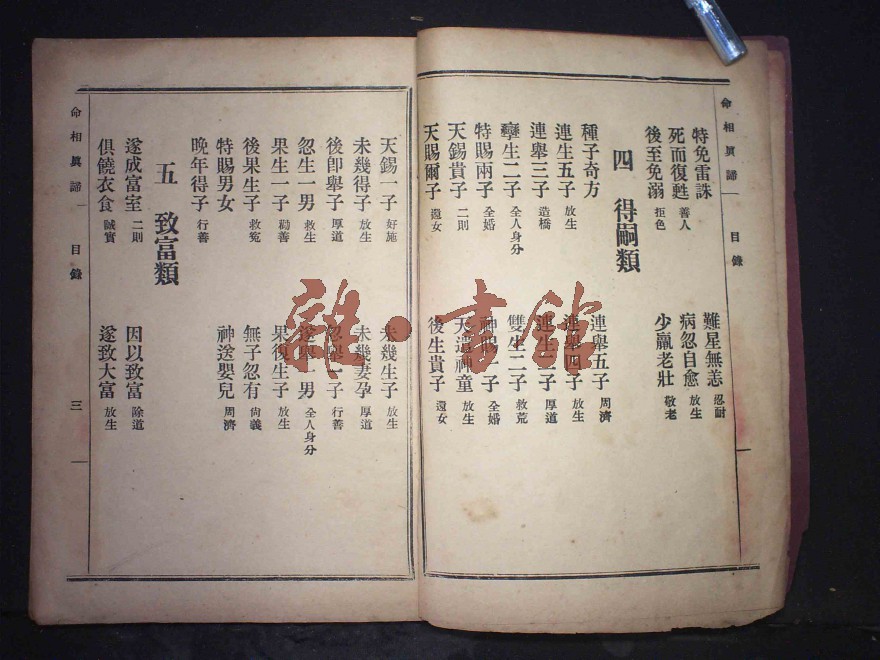 命相眞諦 目錄
特免雷誅 難星無恙 忍耐
死而復甦 善人 病忽自愈 放生
後至免溺 拒色 少羸老壯 敬老
四 得嗣類
種子奇方 連舉五子 周濟
連生五子 放生 連舉四子 放生
連舉三子 造橋 連生子 厚道
孿生二子 全人身分 雙生二子 救荒
特賜兩子 全婚 神賜子 全婚
天錫貴子 二則 天遣神童 放生
天賜爾子 還女 後生貴子 還女
天錫一子 好施 未幾生子 放生
未幾得子 放生 未幾妻孕 厚道
後卽舉子 厚道 忽舉一子 行善
忽生一男 救生 遂舉一男 全人身分
果生一子 勸善 果復生子 放生
後果生子 救冤 無子忽有 尙義
特賜男女 神送嬰兒 周濟
晚年得子 行善
五 致富類
遂成富室 二則 因以致富 除道
俱饒衣食 誠實 遂致大富 放生
命相眞諦 目錄 三
雜·書館